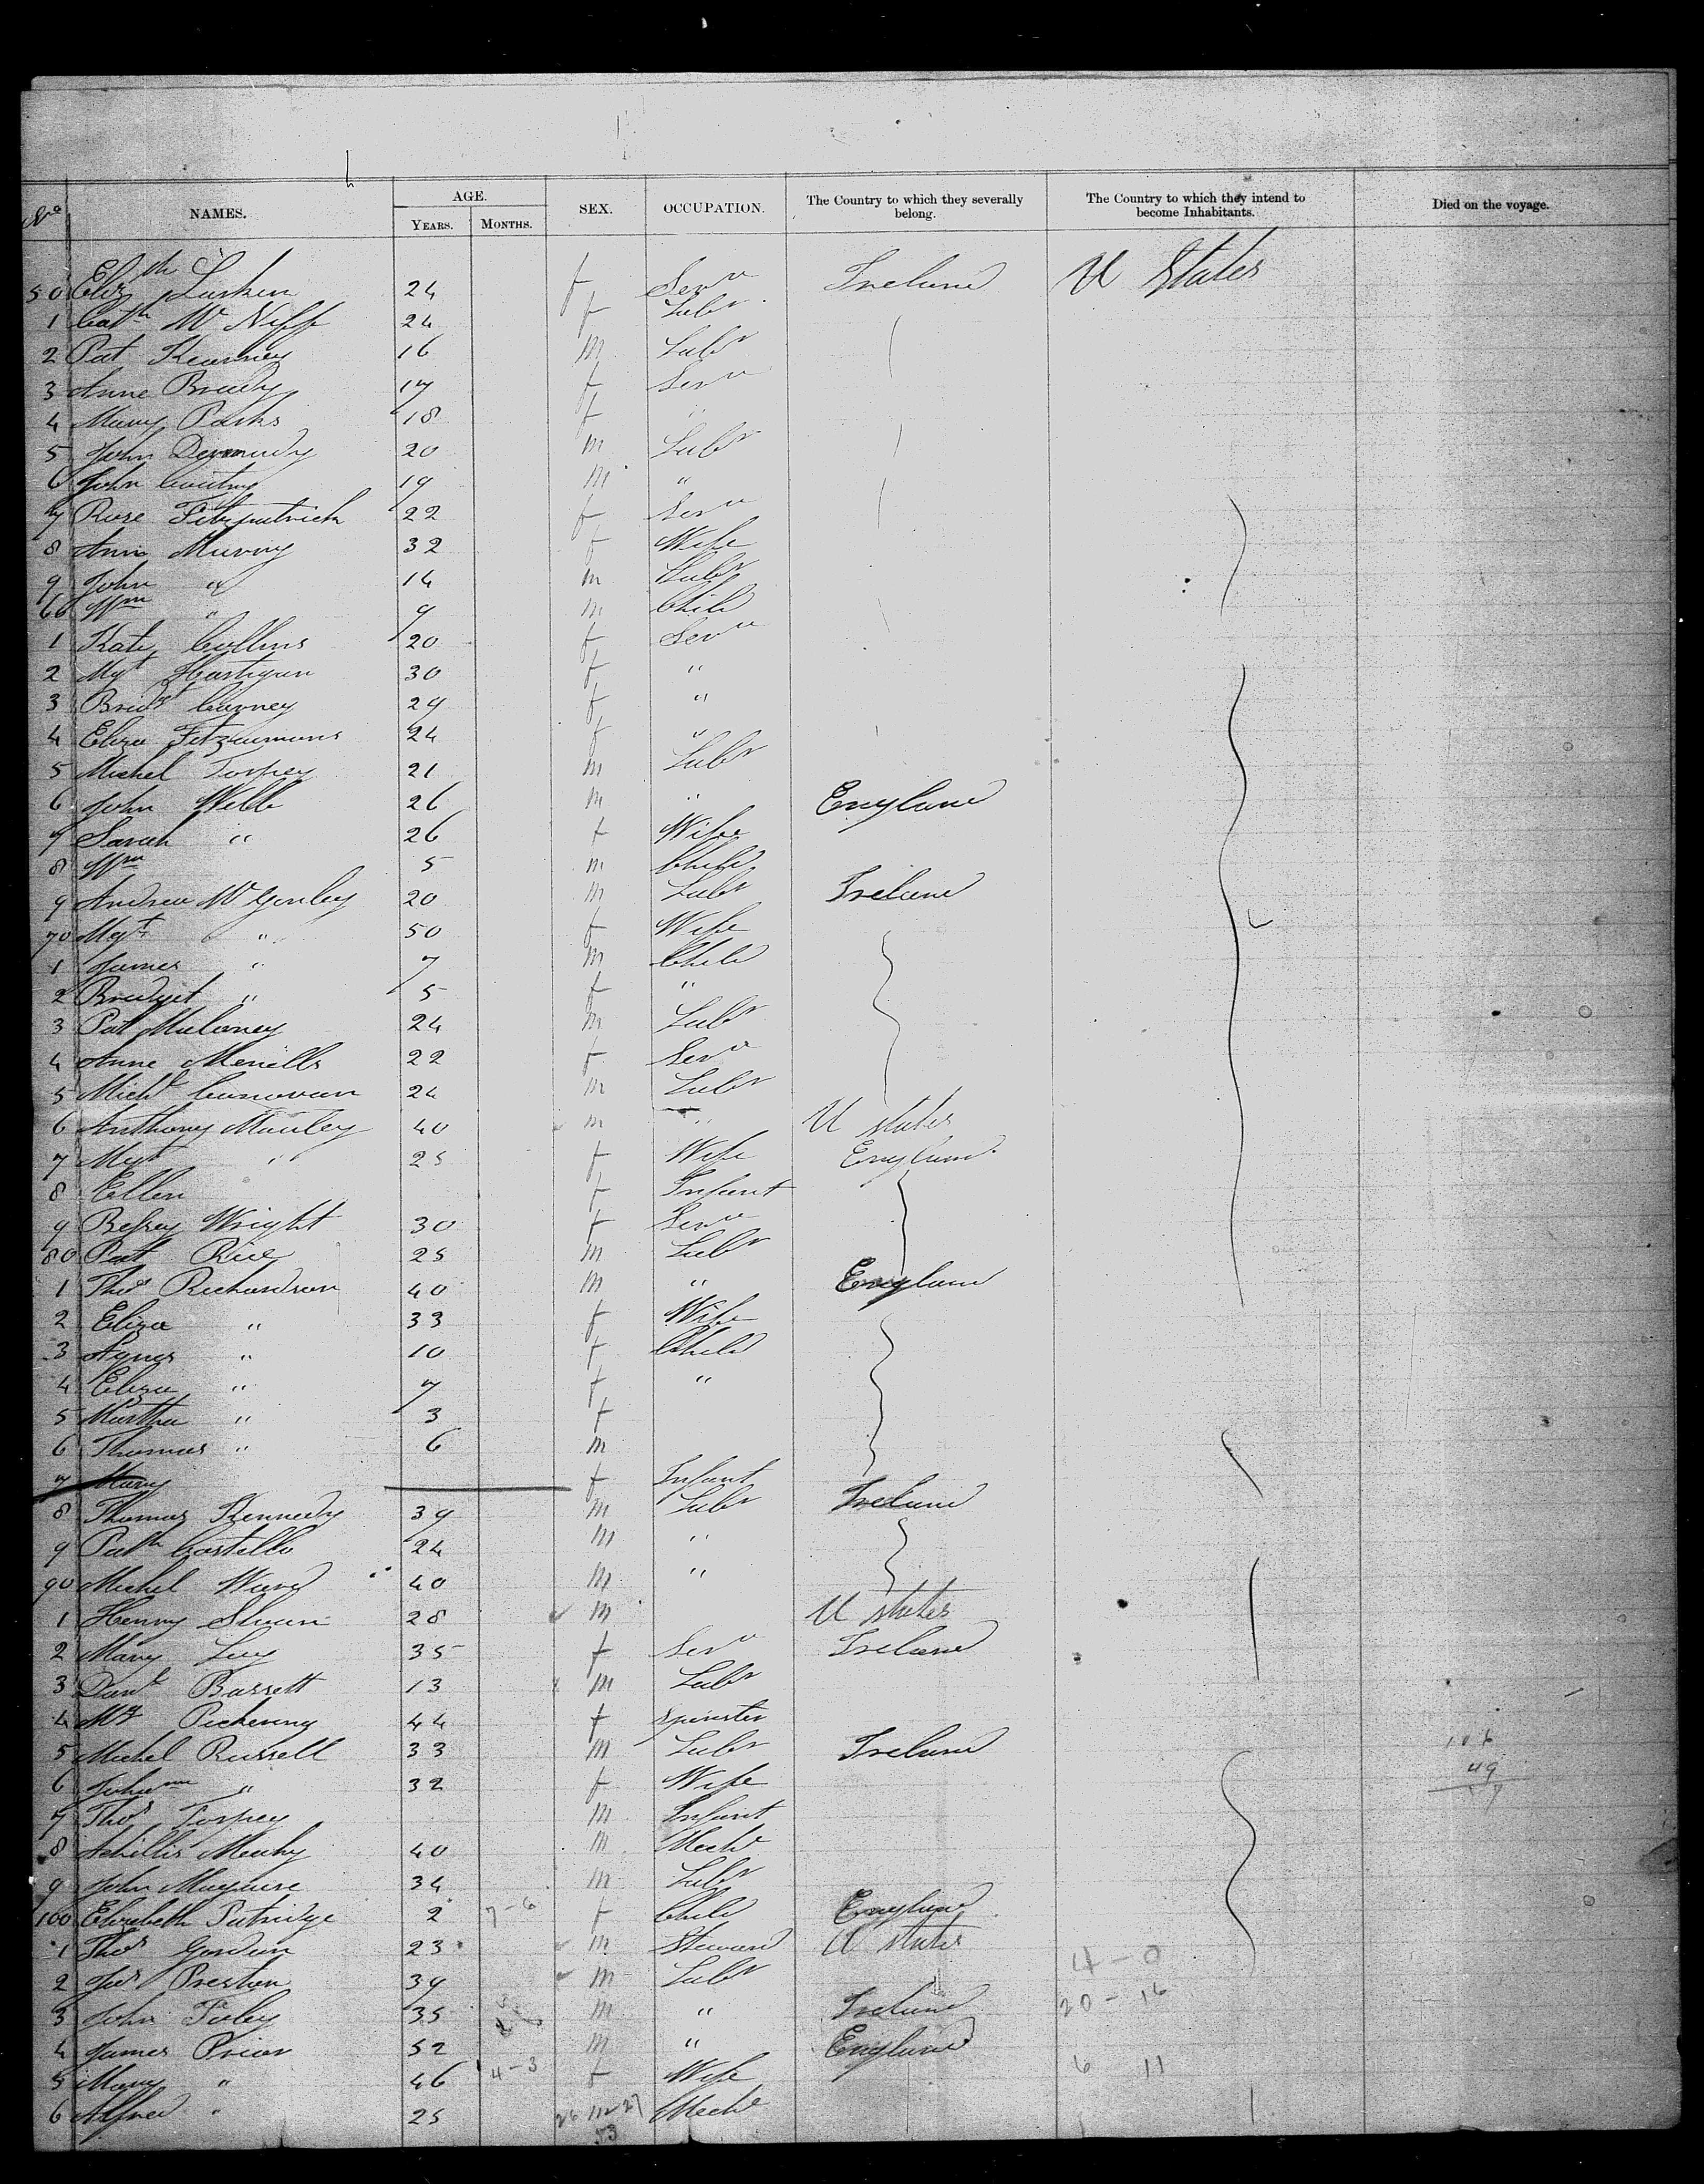 No NAMES. AGE. YEARS. MONTHS. SEX. OCCUPATION. The Country to which they severally belong. The Country to which they intend to become Inhabitants. Died on the voyage.
50 Elizth Larken 24 f Servt Ireland U States
1 Cath Mc Niff 24 f Labr
2 Pat Kearney 16 m Labr
3 Anne Brady 17 f Servt
4 Mary Parks 18 f "
5 John Dermudy 20 m Labr
6 John 19 m "
7 Rose Fitzpatrick 22 f Servt
8 Ann Murray 32 f Wife
9 John " 14 m Labr
60 Wm " 9 m Child
1 Katy Collins 20 f Servt
2 Mgt Hartigan 30 f "
3 Bridt Carney 29 f "
4 Eliza Fitzsimmons 24 f "
5 Michel Torpey 21 m Labr
6 John Webb 26 m " England
7 Sarah " 26 f Wife
8 Wm 5 m Child
9 Andrew Mc Gonley 20 m Labr Ireland
70 Mgt " 50 f Wife
1 James " 7 m Child
2 Bridget " 5 f "
3 Pat Maloney 24 m Labr
4 Anne 22 f Servt
5 Michl Conovan 24 m Labr
6 Anthony Manley 40 m " U States
7 Mgt " 25 f Wife England
8 Ellen f Infant
9 Betsey Wright 30 f Servt
80 Pat Rice 25 m Labr
1 Thos Richardson 40 m " England
2 Eliza " 33 f Wife
3 Agnes " 10 f Child
4 Eliza " 7 f "
5 Martha " 3 f
6 Thomas " 6 m
7 Mary f Infant
8 Thomas Kennedy 39 m Labr Ireland
9 Patk Costello 24 m "
90 Michel Ward 40 m "
1 Henry 28 m U States
2 Mary 35 f Servt Ireland
3 Danl Bassett 13 m Labr
4 Pickering 44 f Spinster
5 Michel Russell 33 m Labr Ireland
6 " 32 f Wife
7 Thos Torpey m Infant
8 Achillis 40 m
9 John Maguire 34 m Labr
100 Elizabeth Patridge 2 7-6 f Child England
1 Thos Gordon 23 m Steward U States
2 Jas Preston 39 m Labr 4-0
3 John Foley 35 m " Ireland 20-16
4 James Prior 52 m " England
5 Mary " 46 4-3 f Wife 6 11
6 Alfred " 25 26 m 27
53
106
49